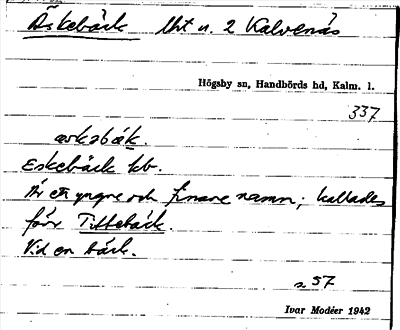 Äskebäck lht u. 2 Kalvenäs
Högsby sn, Handbörds hd, Kalm. l.
337
æskabäk.
Eskebäck kb.
Är ett yngre och finare namn; kallades
förr Tittebäck.
Vid en bäck.
s 57
Ivar Modéer 1942